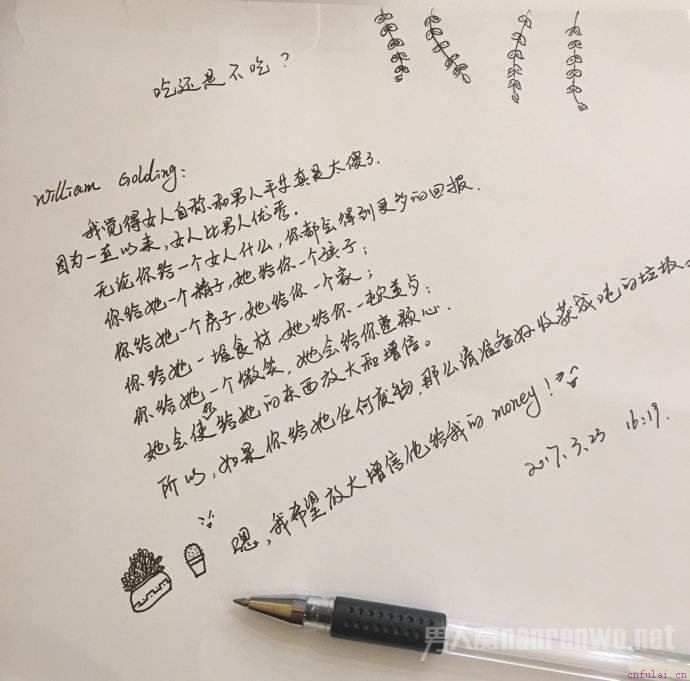 吃还是不吃？
William Golding:
我觉得女人自称和男人平等真是太傻了.
因为一直以来,女人比男人优秀.
无论你给一个女人什么,你都会得到更多的回报.
你给她一个精子,她给你一个孩子;
你给她一个房子,她给你一个家;
你给她一堆食材,她给你一顿美食;
你给她一个微笑,她会给你整颗心.
她会使你给她的东西放大和增倍。
所以,如果你给她任何废物,那么请准备好收获成吨的垃圾。
嗯,我希望放大增倍他给我的money!
2017.3.23 16:19.
男人窝nanrenwo.net
cnfulai.cn